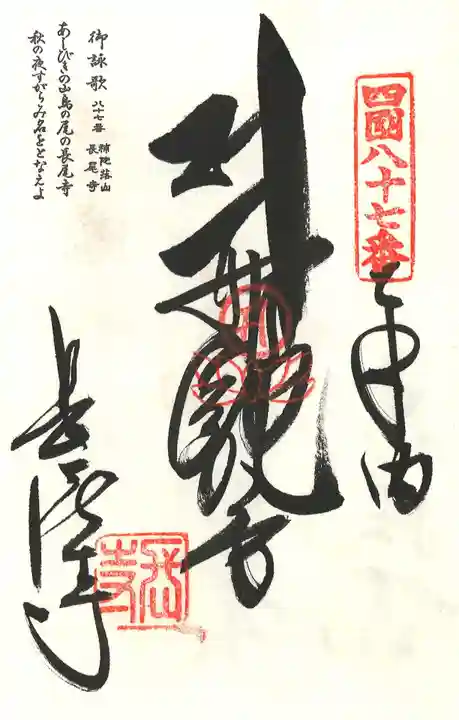 四國八十七番
奉納
聖観音
長尾寺
御詠歌 八十七番 補陀落山 長尾寺
あしびきの山鳥の尾の長尾寺
秋の夜すがらみ名をとなえよ